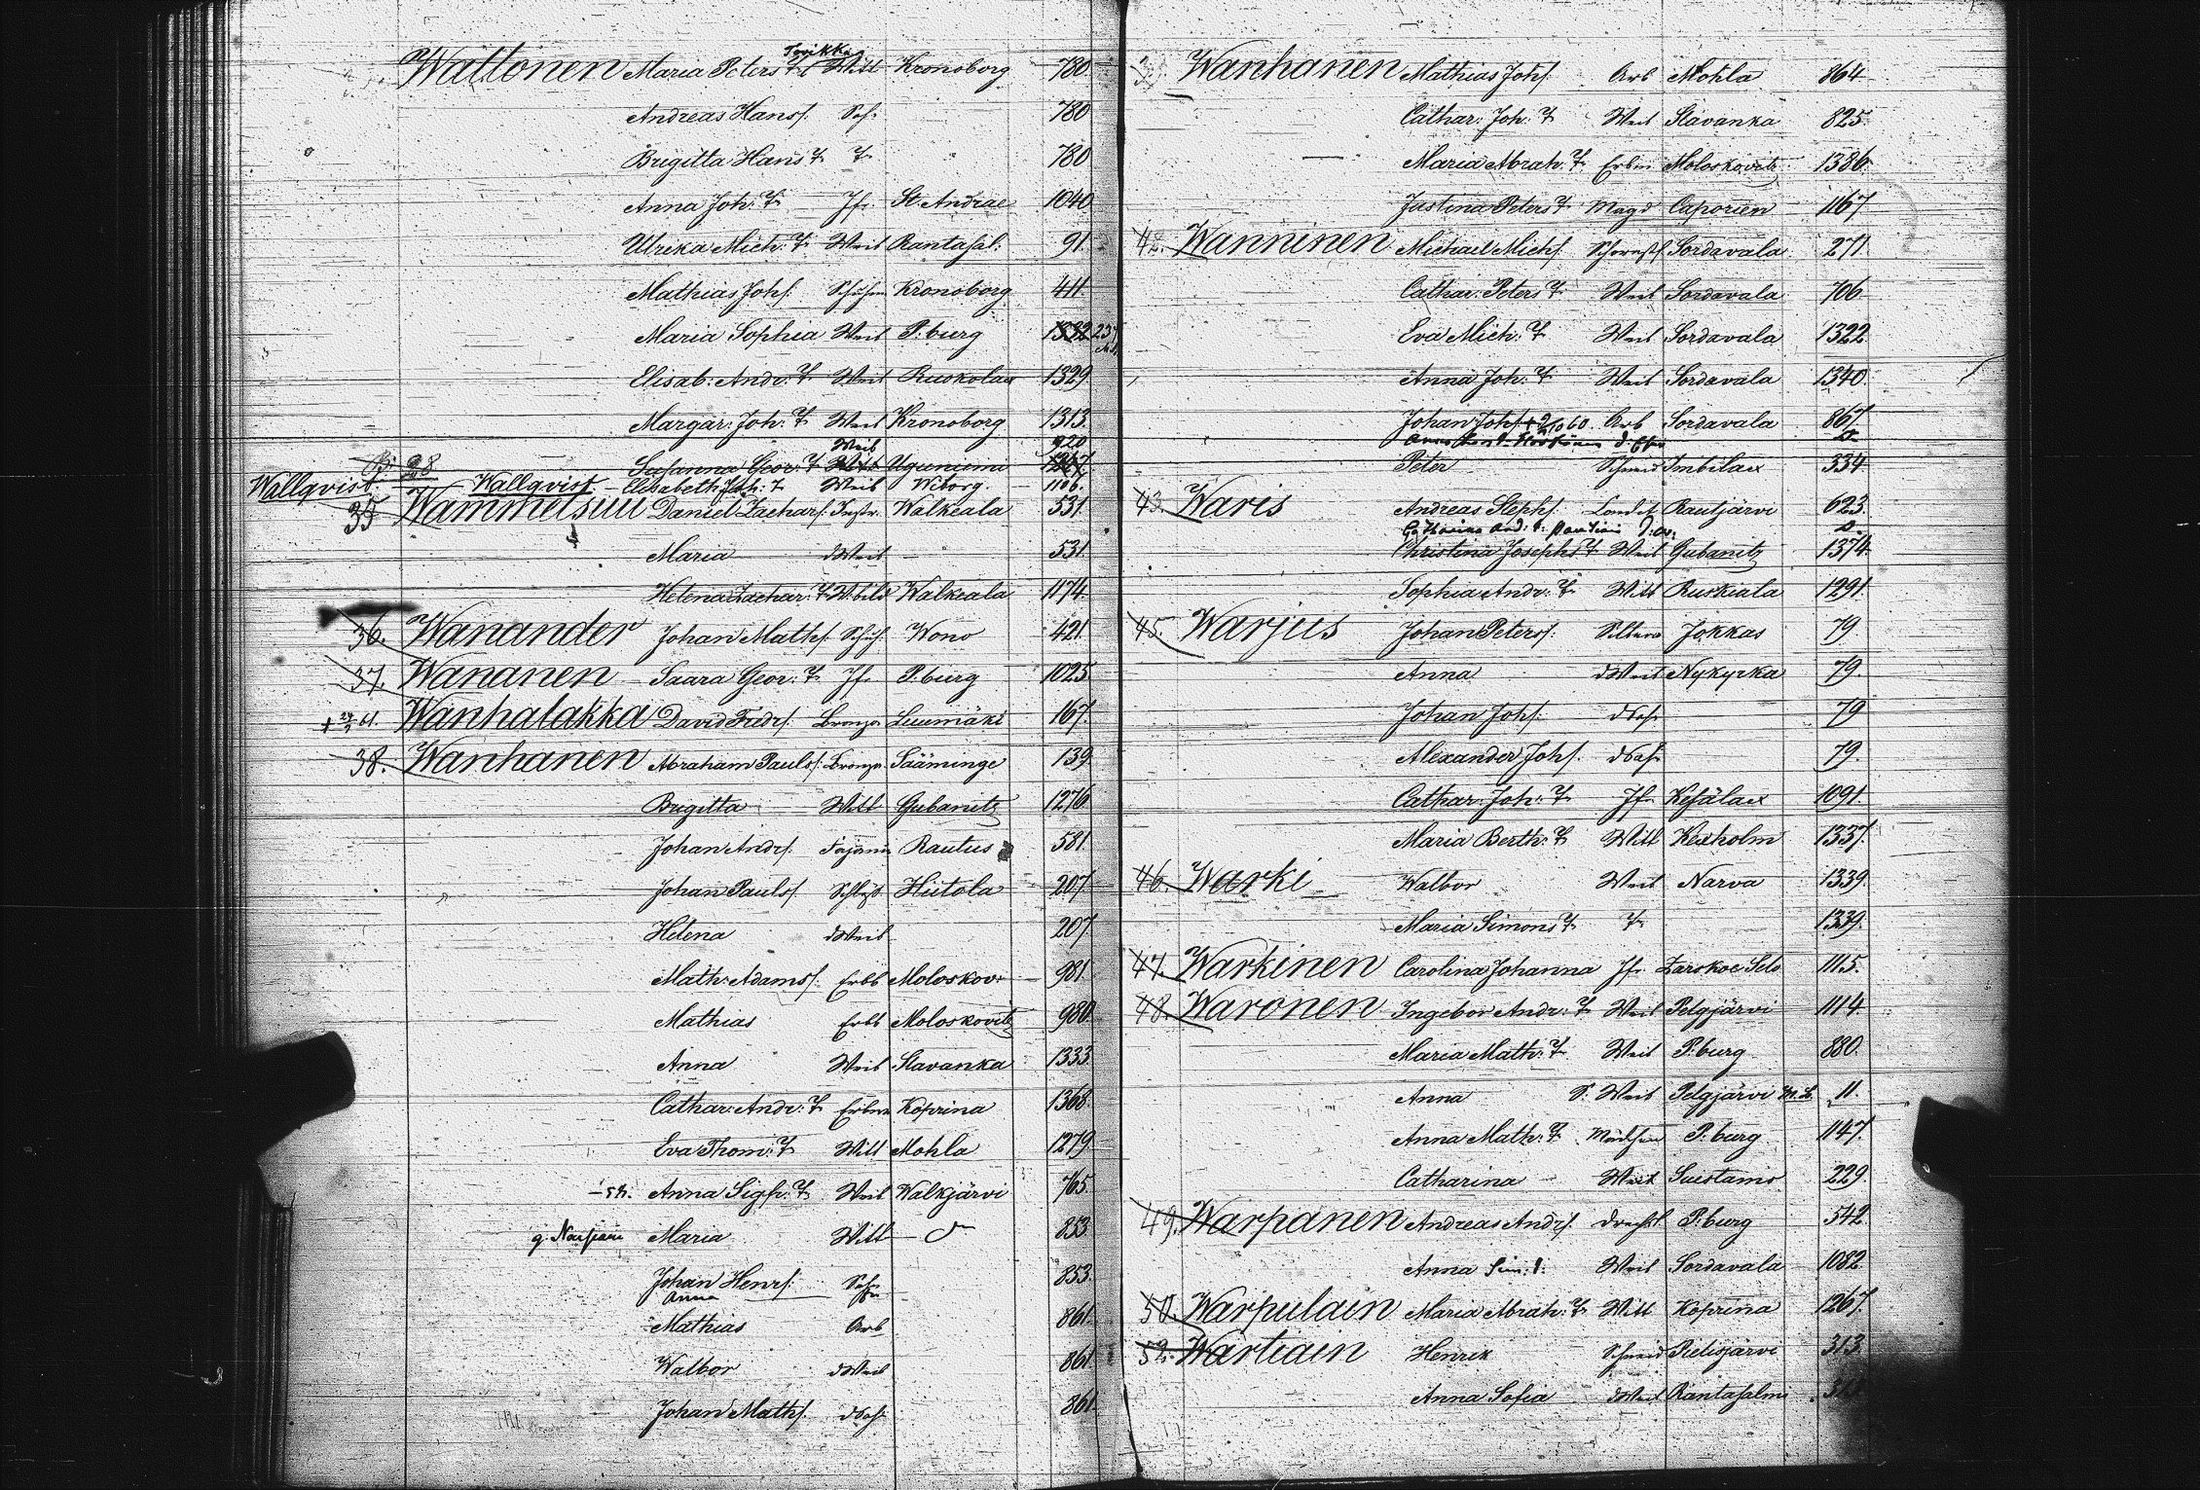 Torikka
Wattonen Maria Peters T. Witt Kronoborg 780
Andreas Hans f. Sohn 780
Brigitta Hans T. T. 780
Anna Joh. T. Jfr. St. Andrae 1040
Ulrika Mich. T. Weib Rantasal. 91.
Mathias Joh f. Kronoborg 411.
Maria Sophia Weib P.burg 1332 237
Elisab. Andr. T. Weib Ruokolax 1329
Margar. Joh. T. Weib Kronoborg 1313.
Weib 920
28 Susanna Geor. T. Witt Uguniemi 1247.
Wallqvist. Wallqvist Elisabeth Joh. T. Weib Wiborg. 1106.
35 Wammelsuu Daniel Zachar f. Instr. Walkeala 531.
Maria d Weib 531.
Helena Zachar. T. W.bild Walkeala 1174.
36. Wanander Johan Math f. Wono 421.
37. Wananen Saara Geor. T. Jfr. P.burg 1025
61. Wanhalakka David Fredr f. Bronzr. Luumäki 167.
38. Wanhanen Abraham Pauls f. Bronzr. Sääminge 139
Brigitta Witt Gubanitz 1276
Johan Andr f. Rautus 581.
Johan Pauls f. Hiitola 207.
Helena d Weib 207
Math. Adams f. Erbb Moloskov. 981.
Mathias Erbb Moloskovitz 980
Anna Weib Slavanka 1333
Cathar. Andr. T. Erbrn Koprina 1368.
Eva Thom. T. Witt Mohla 1279
Anna Sigfr. T. Weib Walkjärvi 765.
Maria Witt 853
Johan Henr f. Sohn 853.
Anna
Mathias Arb 861.
Walbor d Weib 861
Johan Math f. d Sohn 861
Wanhanen Mathias Joh f. Arb Mohla 864
Cathar. Joh. T. Weib Slavanka 825.
Maria Abrah. T. Erbrn Moloskovitz 1386
Justina Peters T. Magd Caporien 1167
42. Wanninen Michael Mich f. Sordavala 271.
Cathar. Peters T. Weib Sordavala 706
Eva Mich. T. Weib Sordavala 1322
Anna Joh. T. Weib Sordavala 1340.
Johan Joh f. 60. Arb Sordavala 867.
Peter Schneid Imbilax 334
43. Waris Andreas Steph f. Rautjärvi 623.
Catharina And. t.
Christina Josephs T. Weib Gubanitz 1374.
Sophia Andr. T. Witt Ruskiala 1291.
45. Warjus Johan Peters f. Jokkas 79.
Anna d Weib Nykyrka 79.
Johan Joh f. d Sohn 79
Alexander Joh f. d Sohn 79.
Cathar. Joh. T. Jfr. Kesälax 1091.
Maria Berth. T. Witt Kexholm 1337.
46. Warki Walbor Weib Narva 1339.
Maria Simons T. T. 1339.
47. Warkinen Carolina Johanna Jfr. Zarskoe Selo 1115.
48. Waronen Ingebor Andr. T. Weib Pelgjärvi 1114
Maria Math. T. Weib P.burg 880.
Anna S. Weib Pelgjärvi 11.
Anna Math. T. Mädchen P.burg 1147.
Catharina Weib Suistamo 229.
49. Warpanen Andreas Andr f. P.burg 542
Anna Sim. t. Weib Sordavala 1082.
50. Warpulain Maria Abrah. T. Witt Koprina 1267.
52. Wartiain Henrik Schneid Pielisjärvi 313.
Anna Sofia d Weib Rantasalmi